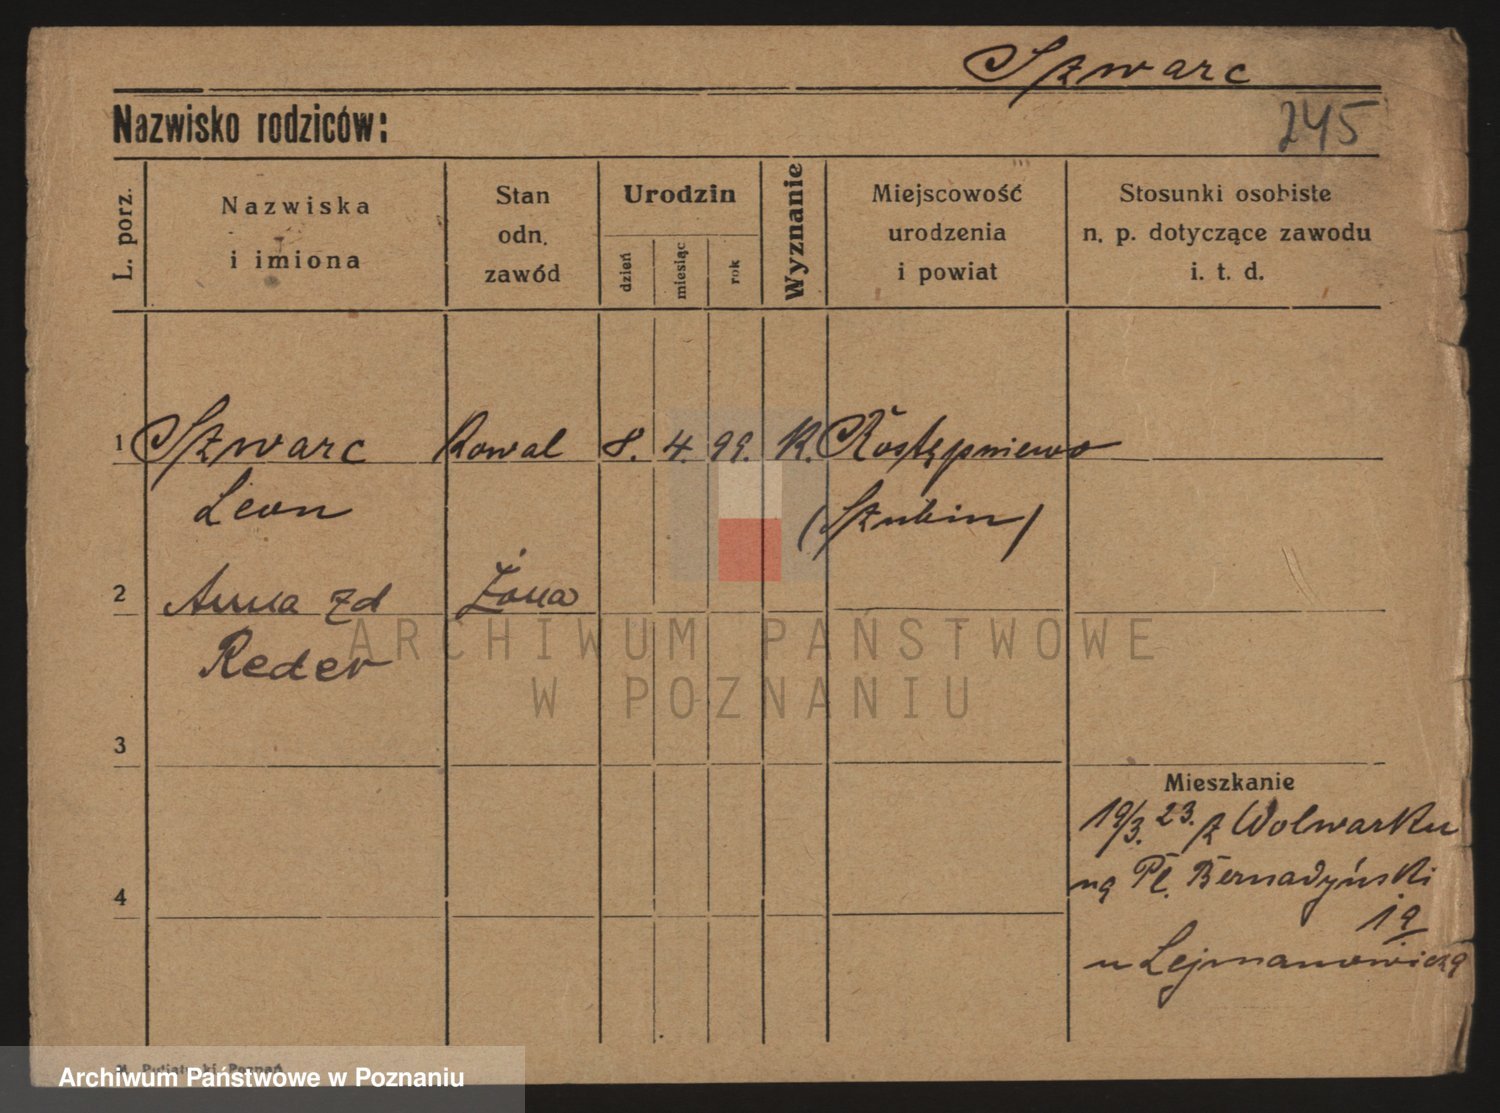 Szwarc
Nazwisko rodziców:
245
L. porz.
Nazwiska
i imiona
Stan
odn.
zawód
Urodzin
dzień
miesiąc
rok
Wyznanie
Miejscowość
urodzenia
i powiat
Stosunki osobiste
n. p. dotyczące zawodu
i. t. d.
1 Szwarc Kowal 8. 4. 99. K. Rostępniewo
Leon (Szubin)
2 Anna zd Żona
Reder
ARCHIWUM PAŃSTWOWE
W POZNANIU
3
Mieszkanie
19/3. 23. z Wolwarku
4
na Pl. Bernadyński
19
u Lejmanowicza
Poznań
Archiwum Państwowe w Poznaniu